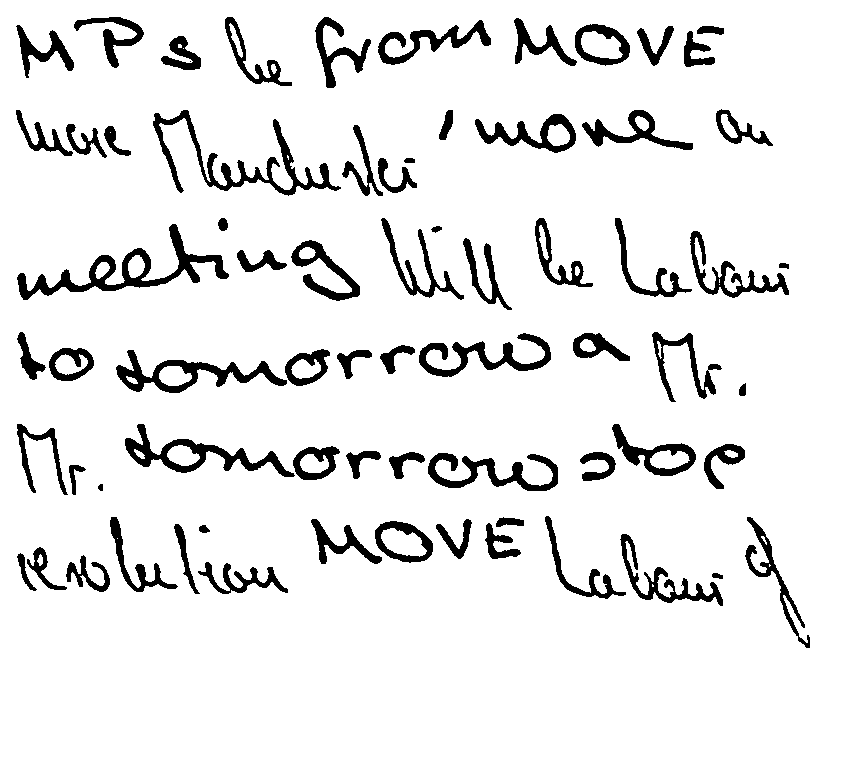 MPs be from MOVE
more Manchester 'move on
meeting Will be Labour
to tomorrow a Mr.
Mr. tomorrow stop
resolution MOVE Labour of